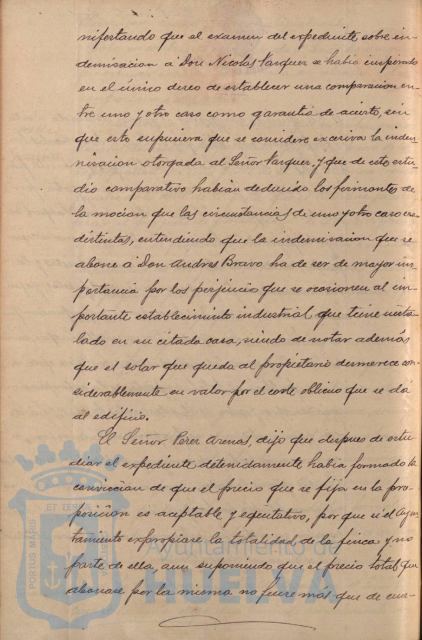 nifestando que el examen del expediente sobre in-
demnisacion á Don Nicolas Vazquez se habia inspirado
en el único deseo de establecer una comparacion en-
tre uno y otro caso como garantía de acierto, sin
que esto supusiera que se considere excesiva la indem-
nisacion otorgada al Señor Vazquez, y que de este estu-
dio comparativo habian deducido los firmantes de
la mocion que las circustancias de uno y otro caso eran
distintas, entendiendo que la indemnisacion que se
abone á Don Andres Bravo ha de ser de mayor im-
portancia por los perjuicio que se ocasionen al im-
portante establecimiento industrial que tiene insta-
lado en su citada casa, siendo de notar además
que el solar que queda al propietario desmerece con-
siderablemente en valor por el corte oblicuo que se dá
al edificio.
El Señor Perez Arenas, dijo que despues de estu-
diar el expediente detenidamente habia formado la
conviccion de que el precio que se fija en la pro-
posicion es aceptable y equitativo, por que si el Ayun-
tamiento expropiase la totalidad de la finca y no
parte de ella, aun suponiendo que el precio total que
abonase por la misma no fuere más que de cua-
PORTUS MARIS
ET TERRÆ
Ayuntamiento de
HUELVA